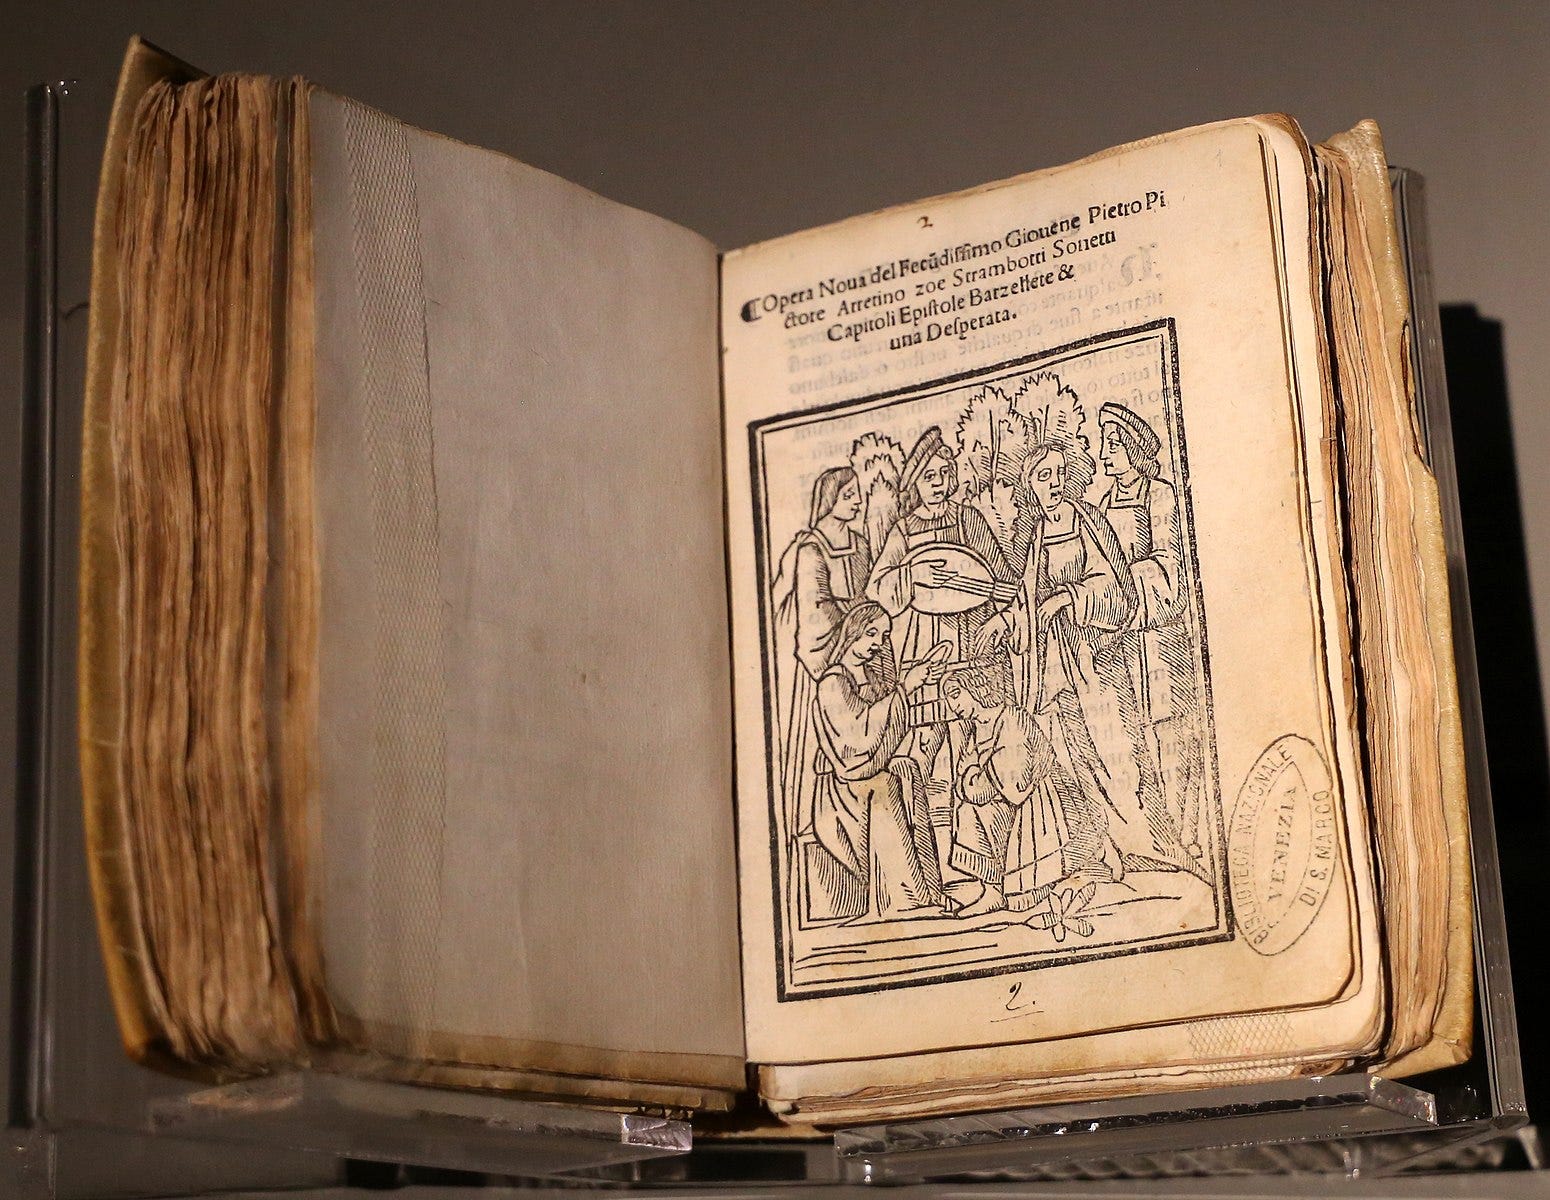 2
¶ Opera Noua del Fecũdissimo Giouene Pietro Pi
ctore Arretino zoe Strambotti Sonetti
Capitoli Epistole Barzellete &
una Desperata.
BIBLIOTECA NAZIONALE
DI S. MARCO
VENEZIA
2.